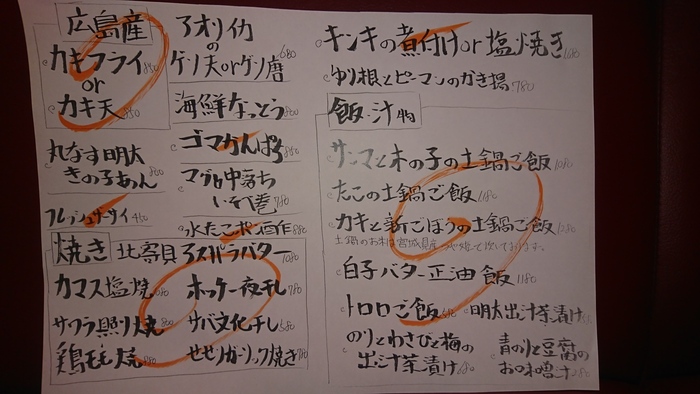 広島産
カキフライ 850
or
カキ天 850
丸なす明太
きの子あん 800
フレッシュザーサイ 450
アオリイカ
の
ゲソ天orゲソ唐 680
海鮮なっとう 800
ゴマかんぱち 850
マグロ中落ち
いそ巻 780
水たこポン酢作 880
焼き
北寄貝アスパラバター 1080
カマス塩焼 680
ホッケ一夜干し 780
サワラ照り焼 800
サバ文化干し 680
鶏モモ焼 880
せせりガーリック焼き 780
キンキの煮付けor塩焼き
ゆり根とピーマンのかき揚 780
飯・汁物
サンマと木の子の土鍋ご飯 1080
たこの土鍋ご飯 1180
カキと新ごぼうの土鍋ご飯 1280
土鍋のお米は宮城県産
白子バター正油飯 1180
トロロご飯
明太出汁茶漬け
のりとわさびと梅の
出汁茶漬け 680
青のりと豆腐の
お味噌汁 280